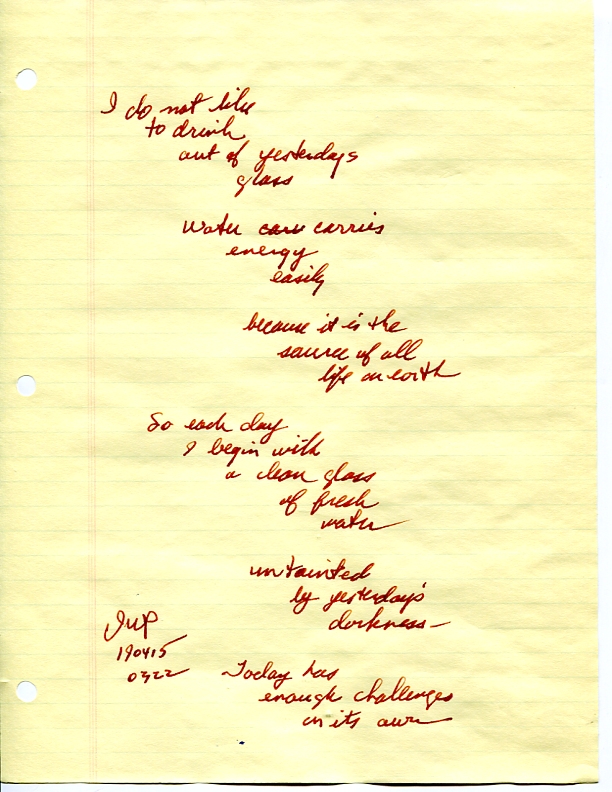 I do not like
to drink
out of yesterdays
glass
water carries
energy
easily
because it is the
source of all
life on earth
So each day
I begin with
a clean glass
of fresh
water
untainted
by yesterday's
darkness—
190415
0322
Today has
enough challenges
on its own